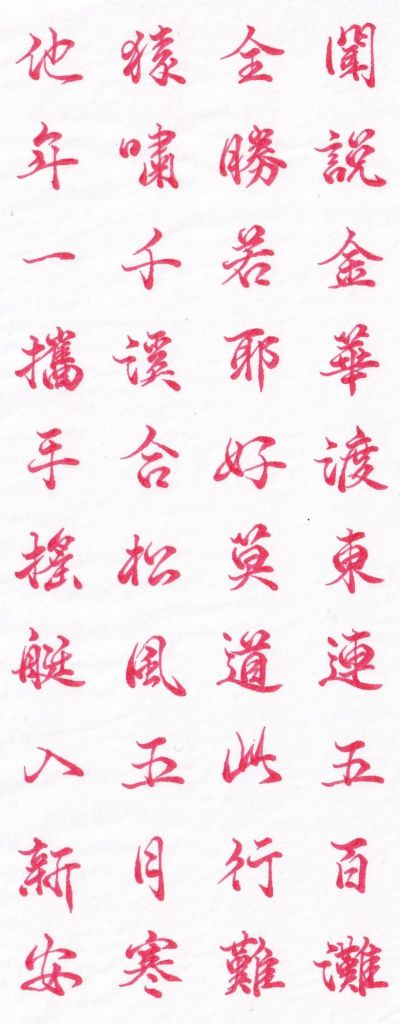 聞說金華渡東連五百灘
全勝若耶好莫道此行難
猿嘯千谿合松風五月寒
他年一攜手搖艇入新安